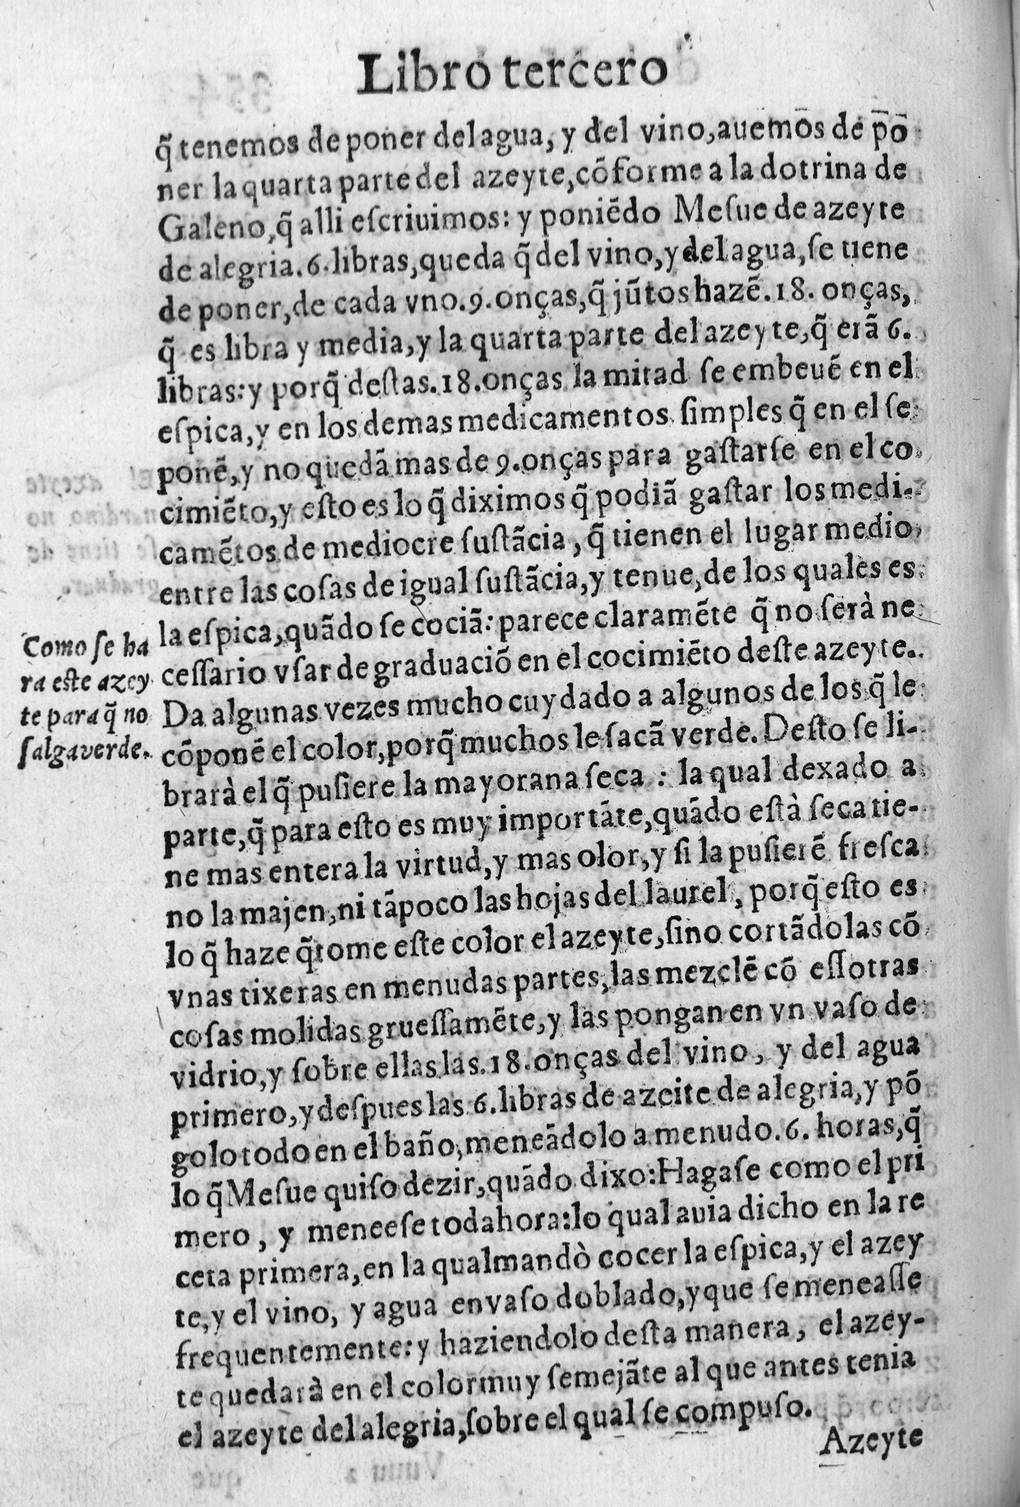 Libro tercero
q̃ tenemos de poner del agua, y del vino, auemos de põ
ner la quarta parte del azeyte, cõforme a la dotrina de
Galeno, q̃ alli escriuimos: y poniẽdo Mesue de azeyte
de alegria. 6. libras, queda q̃ del vino, y del agua, se tiene
de poner, de cada vno. 9. onças, q̃ jũtos hazẽ. 18. onças,
q̃ es libra y media, y la quarta parte del azeyte, q̃ erã 6.
libras: y porq̃ destas. 18. onças la mitad se embeuẽ en el
espica, y en los demas medicamentos simples q̃ en el se
ponẽ, y no quedã mas de 9. onças para gastarse en el co
cimiẽto, y esto es lo q̃ diximos q̃ podiã gastar los medi-
camẽtos de mediocre sustãcia, q̃ tienen el lugar medio
entre las cosas de igual sustãcia, y tenue, de los quales es
la espica, quãdo se cociã: parece claramẽte q̃ no serà ne
cessario vsar de graduaciõ en el cocimiẽto deste azeyte.
Da algunas vezes mucho cuydado a algunos de los q̃ le
cõponẽ el color, porq̃ muchos le sacã verde. Desto se li-
brarà el q̃ pusiere la mayorana seca: la qual dexado a
parte, q̃ para esto es muy importãte, quãdo està seca tie-
ne mas entera la virtud, y mas olor, y si la pusierẽ fresca
no la majen, ni tãpoco las hojas del laurel, porq̃ esto es
lo q̃ haze q̃ tome este color el azeyte, sino cortãdolas cõ
vnas tixeras en menudas partes, las mezclẽ cõ essotras
cosas molidas gruessamẽte, y las pongan en vn vaso de
vidrio, y sobre ellas las. 18. onças del vino, y del agua
primero, y despues las 6. libras de azeite de alegria, y põ
golo todo en el baño, meneãdolo a menudo. 6. horas, q̃
lo q̃ Mesue quiso dezir, quãdo dixo: Hagase como el pri
mero, y meneese toda hora: lo qual auia dicho en la re
ceta primera, en la qual mandò cocer la espica, y el azey
te, y el vino, y agua en vaso doblado, y que se meneasse
frequentemente: y haziendolo desta manera, el azey-
te quedarà en el color muy semejãte al que antes tenia
el azeyte del alegria, sobre el qual se compuso.
Azeyte
Como se ha
ra este azey
te para q̃ no
salga verde.